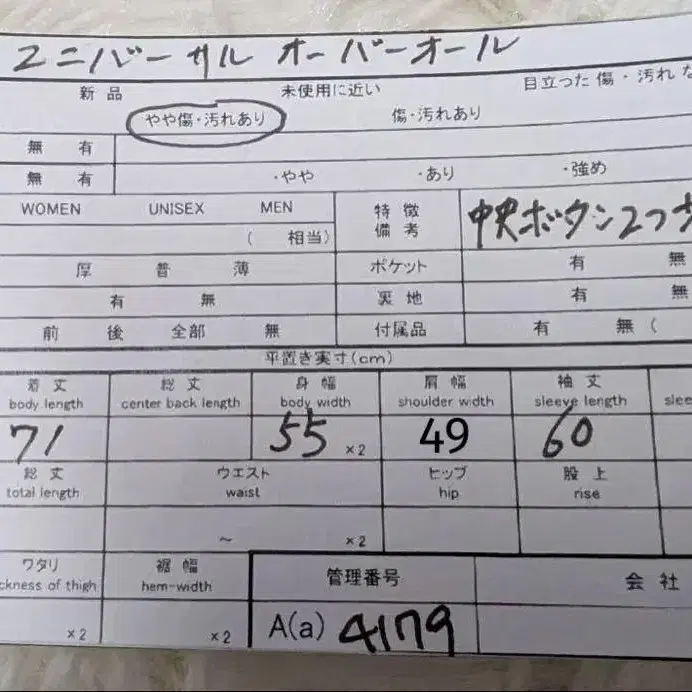 ユニバーサル オーバーオール
新品 未使用に近い 目立った傷・汚れな
やや傷・汚れあり 傷・汚れあり
無 有
無 有 ・やや ・あり ・強め
WOMEN UNISEX MEN 特徴 備考 中央ボタン2つ
( 相当)
厚 普 薄 ポケット 有 無
有 無 裏地 有 無
前 後 全部 無 付属品 有 無 (
平置き実寸(cm)
着丈 総丈 身幅 肩幅 袖丈
body length center back length body width shoulder width sleeve length slee
71 55 ×2 49 60
総丈 ウエスト ヒップ 股上
total length waist hip rise
~ ×2
ワタリ 裾幅 管理番号 会社
ckness of thigh hem-width
×2 ×2 A(a) 4179